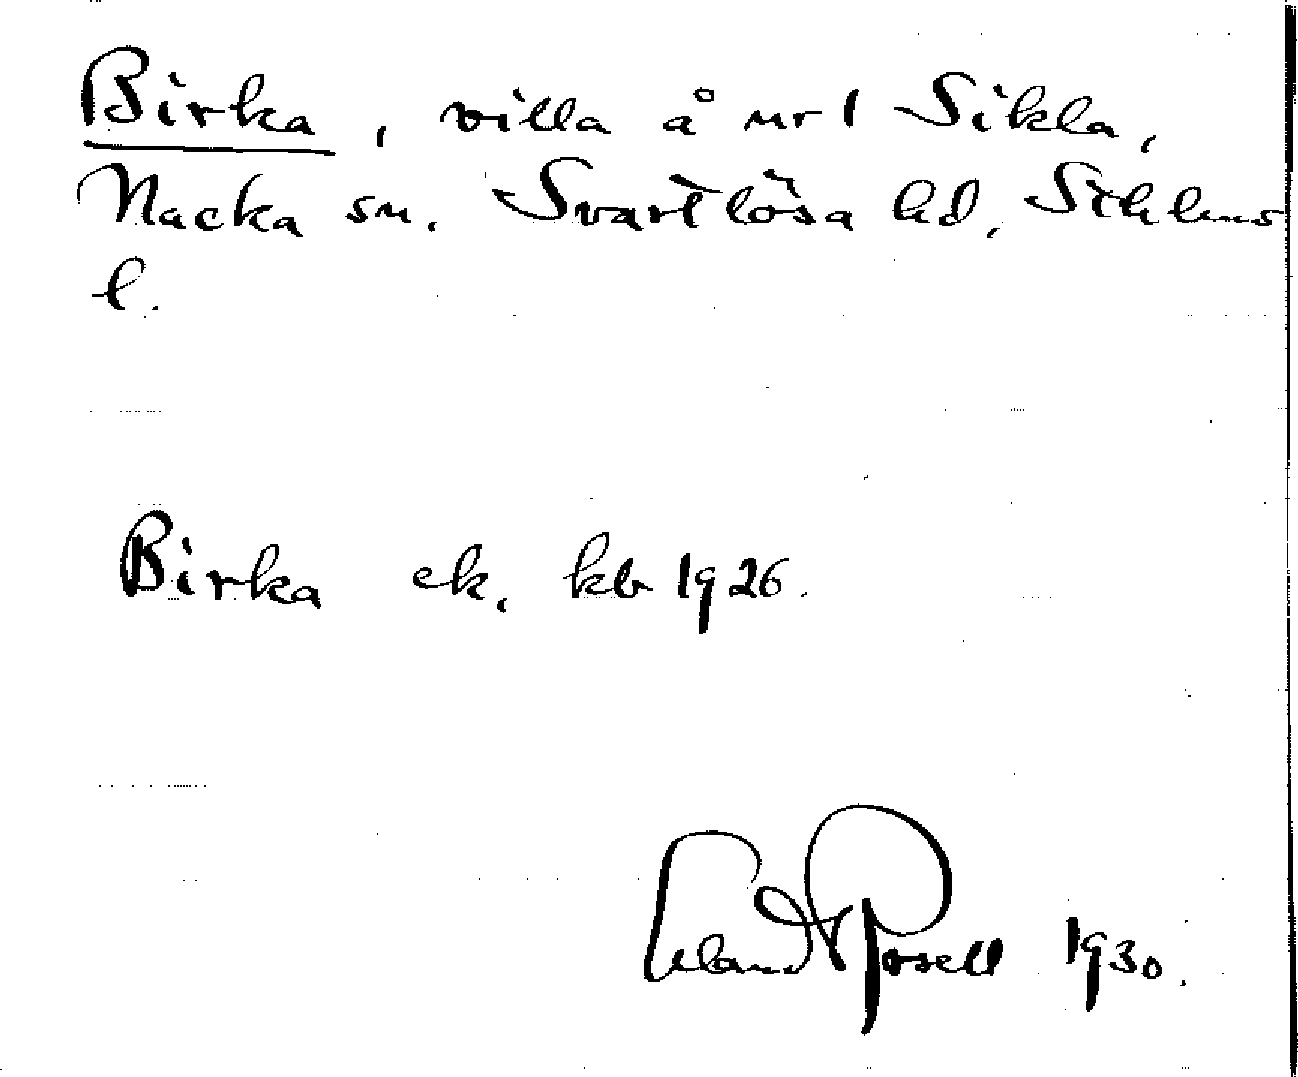 Birka, villa å nr 1 Sikla,
Nacka sn. Svartlösa hd, Sthlms
l.
Birka ek. kb 1926.
Erland Rosell 1930.